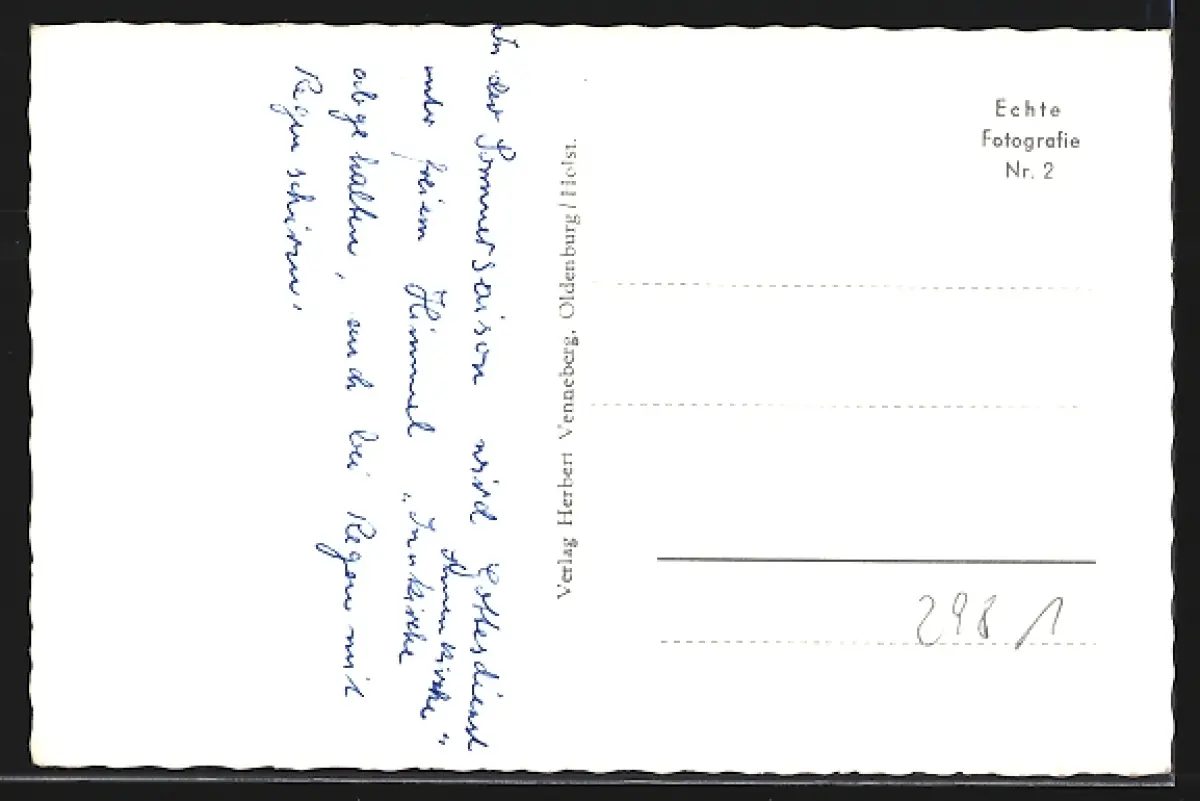 In der Sommersaison wird Gottesdienst
unter freiem Himmel „Inselkirche
Dünenkirche“
abgehalten, auch bei Regen mit
Regenschirm.
Verlag Herbert Venneberg, Oldenburg/Holst.
Echte
Fotografie
Nr. 2
298 1